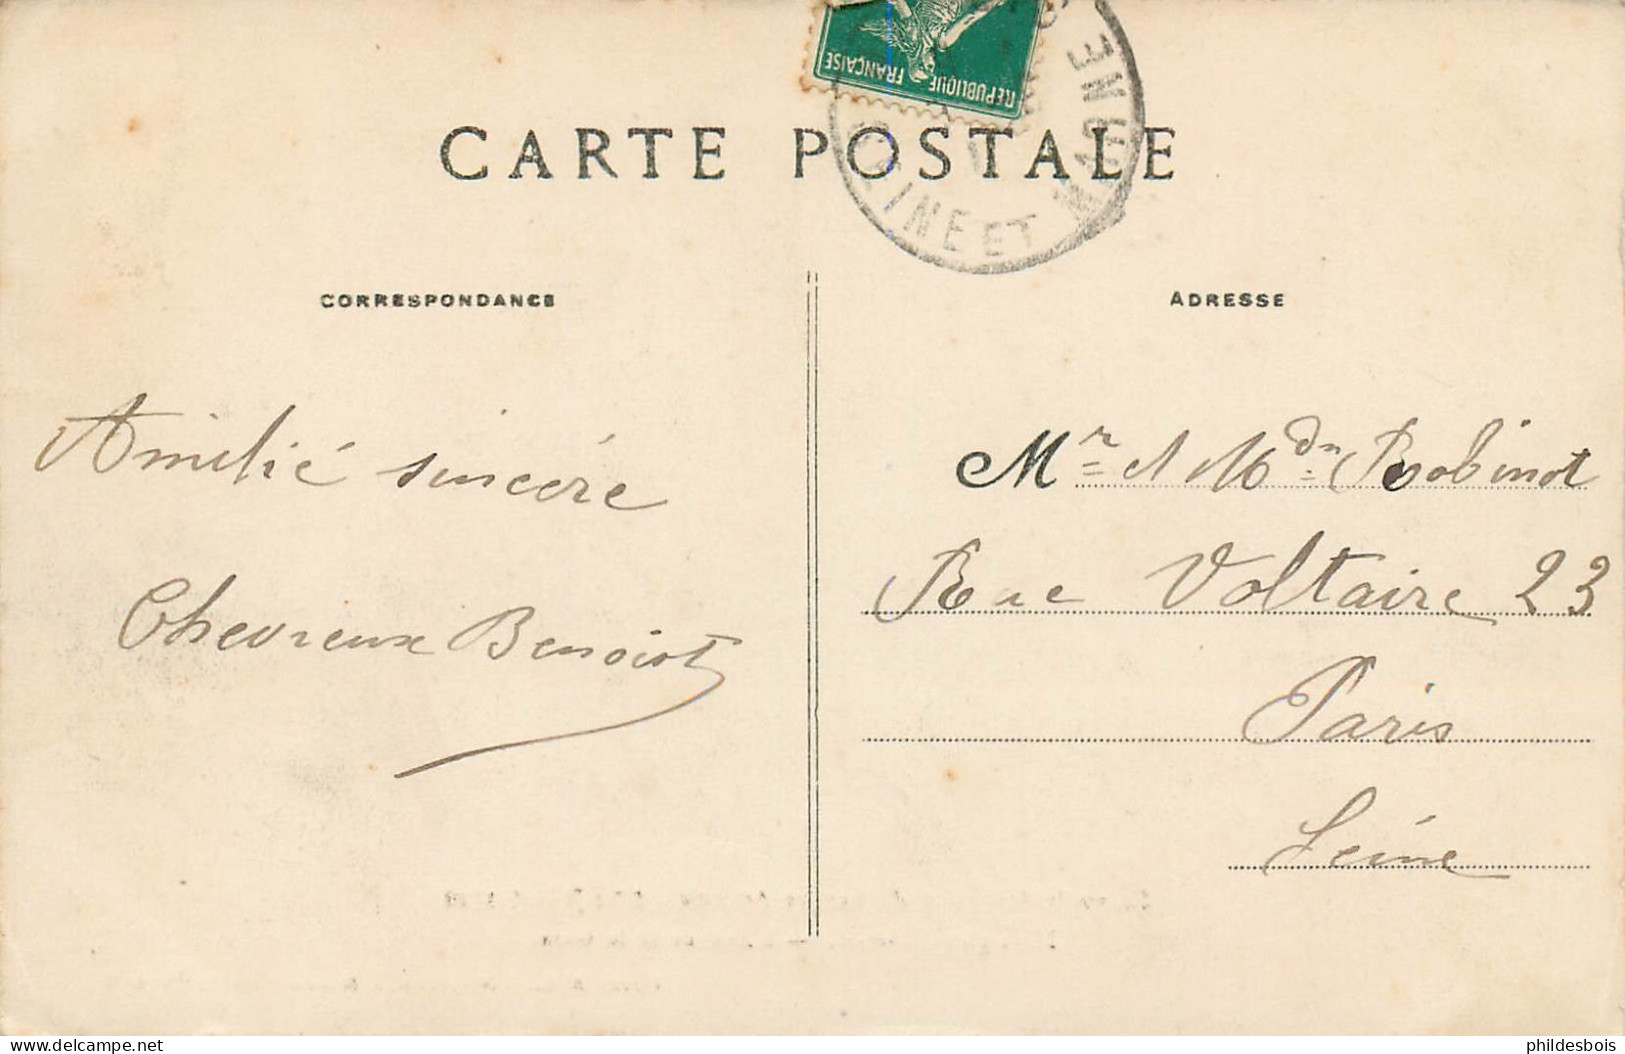 RÉPUBLIQUE FRANÇAISE
SEINE ET MARNE
CARTE POSTALE
CORRESPONDANCE
ADRESSE
Amitié sincère
Chevreux Benoist
Mr et Mdme Robinot
Rue Voltaire 23
Paris
Seine
www.delcampe.net
phildesbois